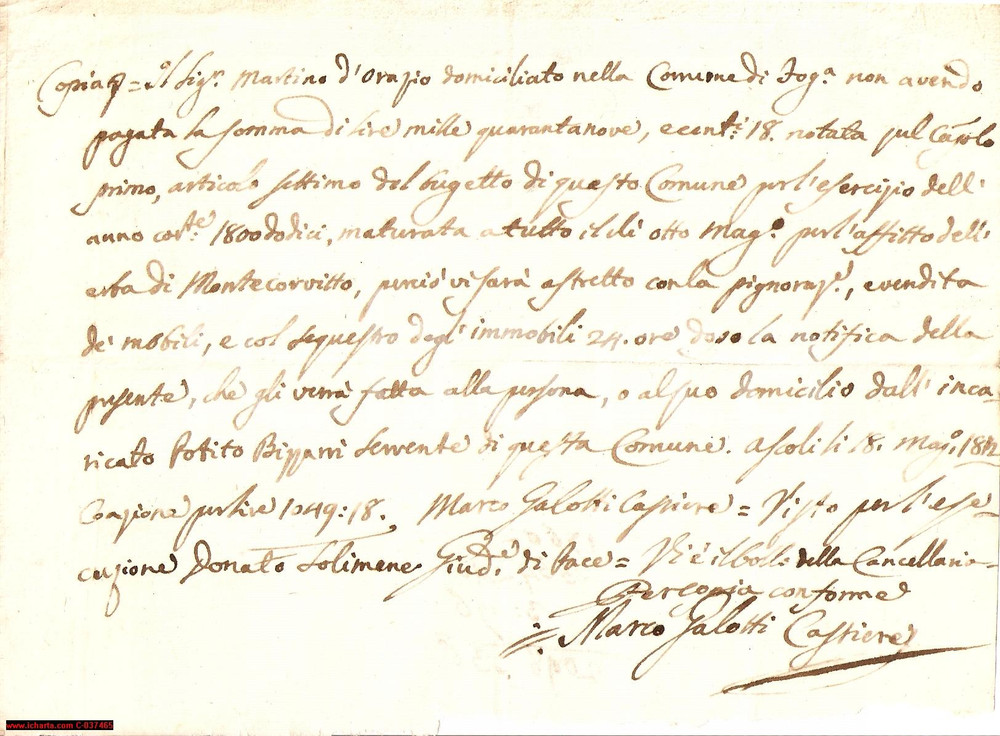 Copia = Il Sig.r Martino d'Orazio domiciliato nella Comune di Fog.a non avendo
pagata la somma di lire mille quarantanove, e cent.i 18. notata sul Cap.olo
primo, articolo settimo del bugetto di questo Comune per l'esercizio dell'
anno cor.te 1800dodici, maturata a tutto il dì otto Mag.o per l'affitto dell'
erba di Montecorvitto, perciò vi sarà astretto con la pignoraz.e, e vendita
de' mobili, e col sequestro degl' immobili 24. ore dopo la notifica della
presente, che gli verrà fatta alla persona, o al suo domicilio dall' inca-
ricato Potito Bizzarri servente di questa Comune. Ascoli li 18. Mag.o 1812
Coazione per lire 1049:18. Marco Galotti Cassiere = Visto per l'ese-
cuzione Donato Solimene Giud.e di Pace = Vi è il boll. della Cancellaria =
Per copia conforme
Marco Galotti Cassiere
www.icharta.com C-037465